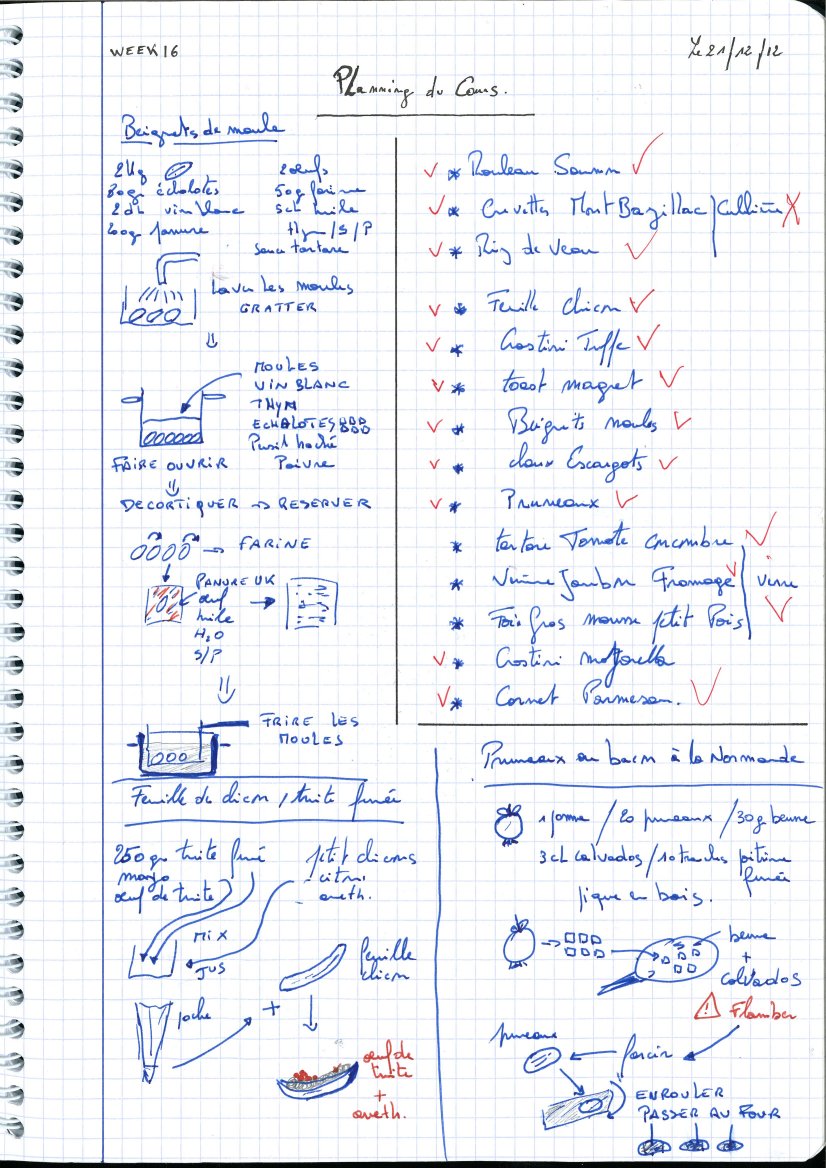 WEEK 16
Le 21/12/12
Planning du Cours.
Beignets de moule
2Kg
80gr échalotes
2dl vin blanc
200gr panure
2 œufs
50g farine
5cl huile
thym / S / P
sauce tartare
Laver les moules
GRATTER
MOULES
VIN BLANC
THYM
ECHALOTES
Persil haché
Poivre
FAIRE OUVRIR
DECORTIQUER → RESERVER
→ FARINE
PANURE UK
œuf
huile
H2O
S/P
FRIRE LES
MOULES
* Rouleau Saumon
* Crevettes Mont Bazillac / Cuillière
* Riz de veau
* Feuille chicon
* Crostini Truffe
* toast magret
* Beignets moules
* choux Escargots
* Pruneaux
* tartare Tomate concombre
* Verrine Jambon Fromage
verre
* Foie Gras mousse petit Pois
* Crostini mozzarella
* Cornet Parmesan.
Feuille de chicon / truite fumée
250 gr truite fumé
mayo
œuf de truite
petit chicons
citron
aneth.
MIX
JUS
feuille
chicon
poche
+
œuf de
truite
+
aneth.
Pruneaux au bacon à la Normande
1 pomme / 20 pruneaux / 30g beurre
3 cl calvados / 10 tranches poitrine
fumée
pique en bois.
beurre
+
calvados
! Flamber
pruneaux
farcir
ENROULER
PASSER AU FOUR